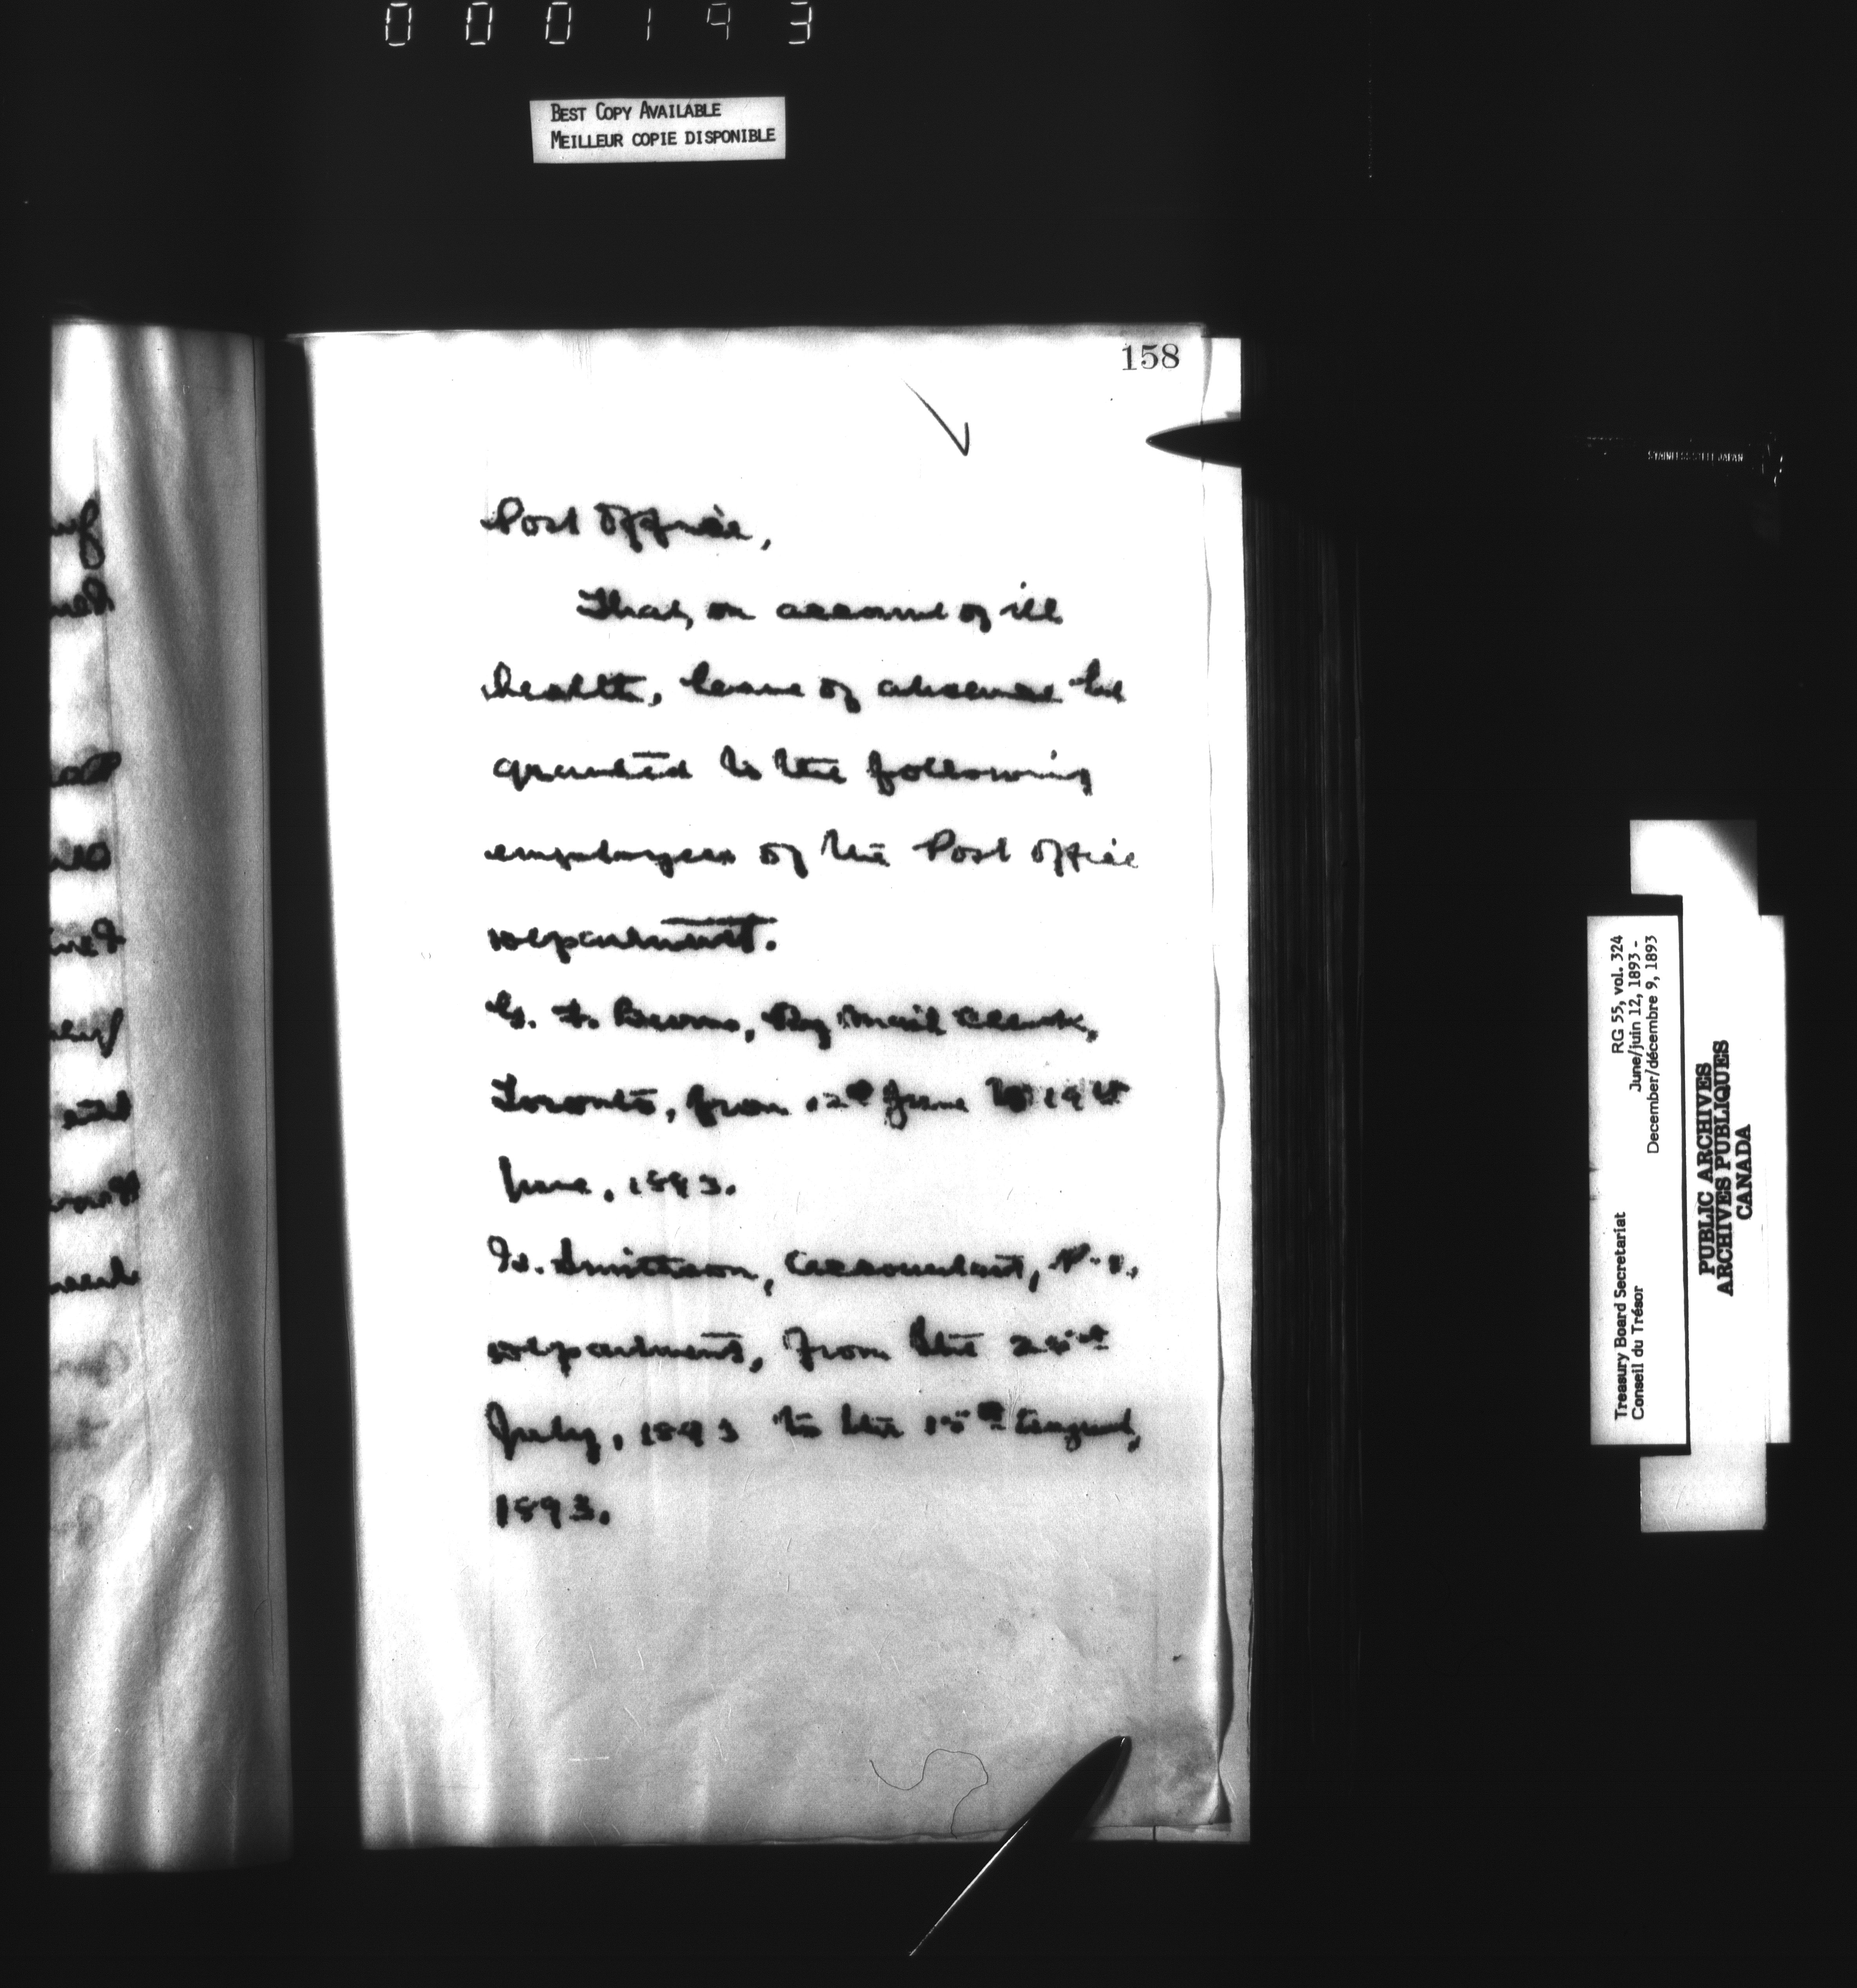 000193
BEST COPY AVAILABLE
MEILLEUR COPIE DISPONIBLE
158
Post Office,
That, on account of ill
health, leave of absence be
granted to the following
employees of the Post Office
Department.
Ry Mail Clerk,
Toronto, from 12th June to 19th
June, 1893.
W. Smithson, Accountant, P.O.
Department, from the
July, 1893 to the 15th August,
1893.
STAINLESS STEEL JAPAN
Treasury Board Secretariat RG 55, vol. 324
Conseil du Trésor June/juin 12, 1893 -
December/décembre 9, 1893
PUBLIC ARCHIVES
ARCHIVES PUBLIQUES
CANADA